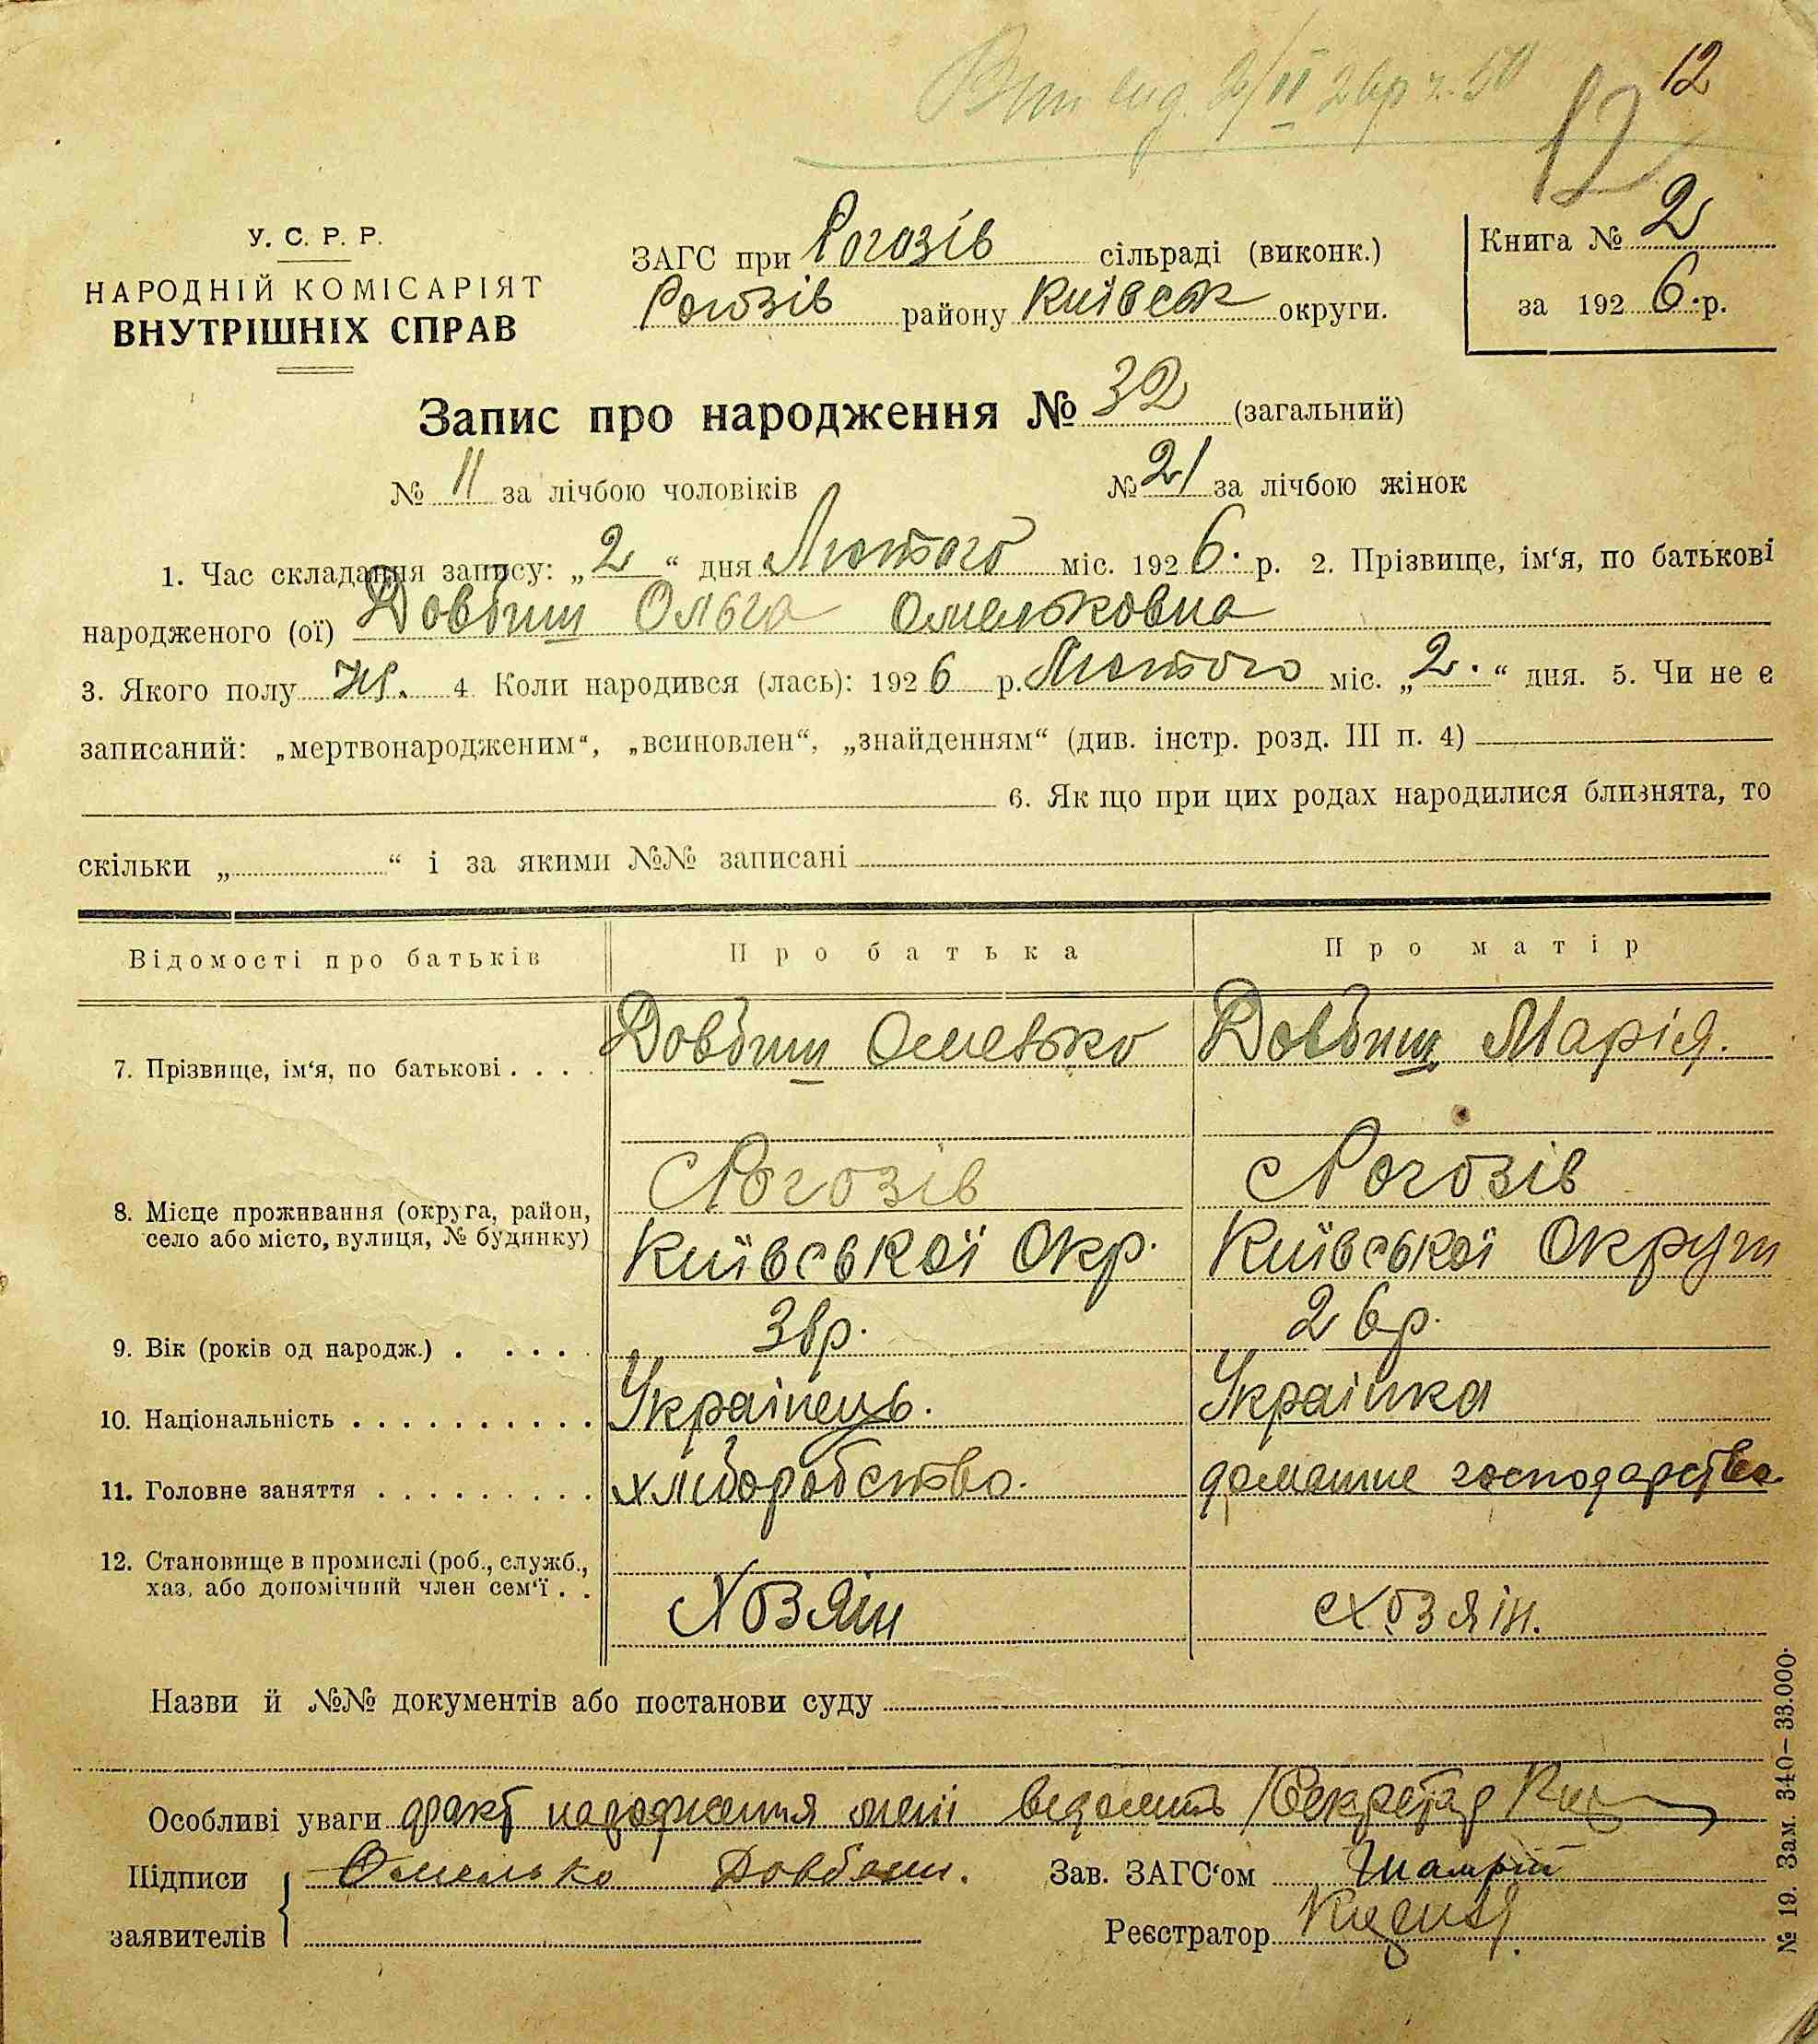 12
12
У. С. Р. Р.
НАРОДНІЙ КОМІСАРІЯТ
ВНУТРІШНІХ СПРАВ
ЗАГС при Рогозів сільраді (виконк.)
Рогозів району Київськ округи.
Книга № 2
за 1926 р.
Запис про народження № 32 (загальний)
№ 11 за лічбою чоловіків № 21 за лічбою жінок
1. Час складання запису: „2“ дня Лютого міс. 1926 р. 2. Прізвище, ім‘я, по батькові
народженого (ої) Довбиш Ольга Омельковна
3. Якого полу ж. 4. Коли народився (лась): 1926 р. Лютого міс. „2.“ дня. 5. Чи не є
записаний: „мертвонародженим“, „всиновлен“, „знайденням“ (див. інстр. розд. III п. 4)
6. Як що при цих родах народилися близнята, то
скільки „ “ і за якими №№ записані
Відомості про батьків Про батька Про матір
7. Прізвище, ім‘я, по батькові . . . . Довбиш Омелько Довбиш Марія.
8. Місце проживання (округа, район, село або місто, вулиця, № будинку) с Рогозів с Рогозів
Київської Окр. Київської Округи
9. Вік (років од народж.) . . . . . 3вр. 26р.
10. Національність . . . . . . . . . . Українець. Українка
11. Головне заняття . . . . . . . . . хліборобство. домашнє господарство
12. Становище в промислі (роб., служб.,
хаз. або допомічний член сем‘ї . . Хозяін хозяін.
Назви й №№ документів або постанови суду
Особливі уваги факт народження мені відомить /Секретар
Підписи Омелько Довбиш. Зав. ЗАГС‘ом
заявителів Реєстратор
№ 19. Зам. 340—33.000.